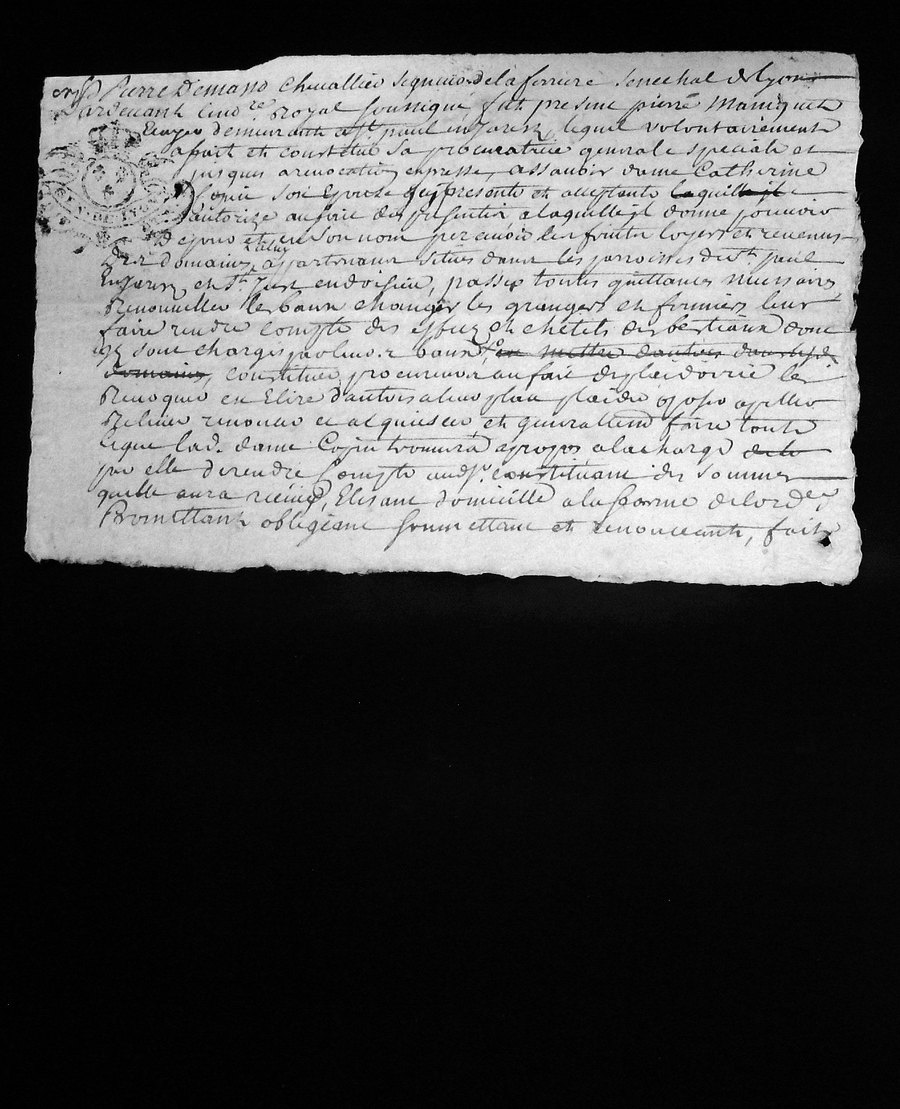 Pierre Demasso Chevallier seigneur de la ferriere senechal de Lyon
Pardevant Royal soussigné fut present pierre Maniquet
demeurant a st paul en Jarest, lequel volontairement
a fait et constitué sa procuratrice generale speciale et
jusques a revocation expresse, assavoir dame Catherine
son Epouse presente et acceptante laquelle il
autorize au fait des presentes a laquelle il donne pouvoir
De pour et en son nom percevoir les fruits loyers et revenus
Des domaines a luy appartenant situés dans les parroisses de st. paul
en Jarez et st. Just en doisieu, passer toutes quittances necessaires
Renouveller les baux changer les grangers et fermiers leur
faire rendre compte des effects et chetels des bestiaux dont
ils sont chargés par leurs baux, en mettre d'autres dans lesd.
domaines, constituer procureur au fait de plaidoirie les
Revoquer en Elire d'autres a leur place plaider oposer apeller
Relever renoncer et acquiescer et generallement faire tout ce
que lad. dame trouvera a propos a la charge de la
par elle de rendre Compte aud. sr. constituant des sommes
quelle aura receues, Elisant domicille a la forme de lord.
Promettant obligeant soumettant et renonceant, fait